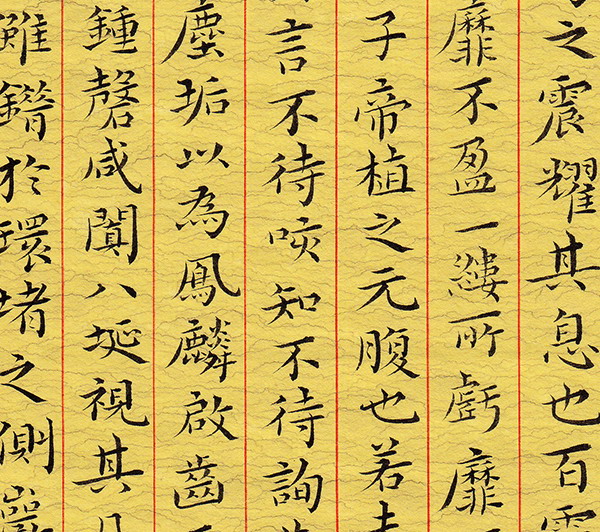 之震耀其息也百
靡不盈一縷所虧靡
子帝植之元腹也若
言不待咳知不待詢
塵垢以為鳳麟啟齒
鍾磬咸闐八埏視其
雖於環堵之側